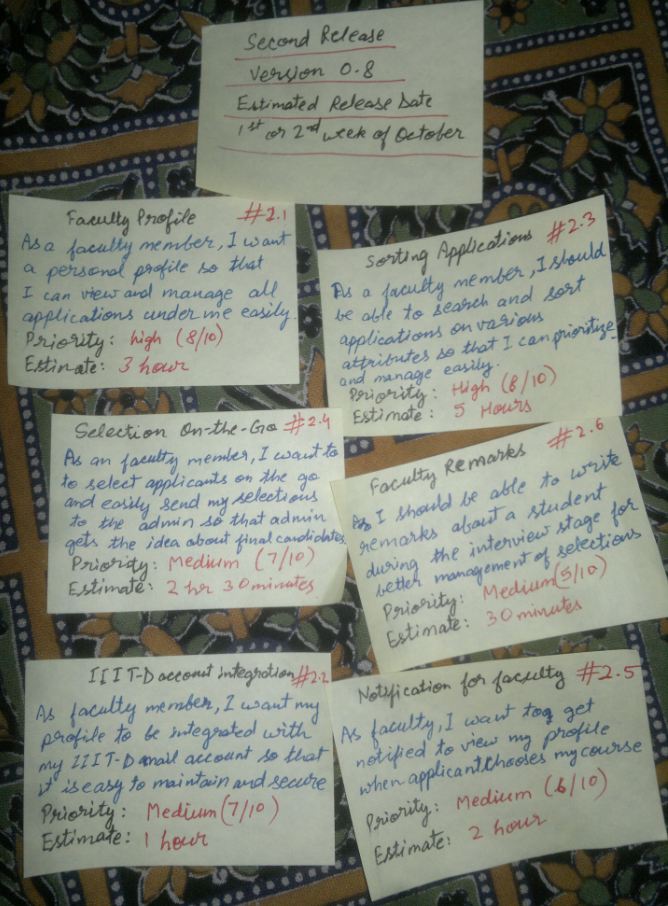 Second Release
Version 0.8
Estimated Release Date
1st or 2nd week of October
Faculty Profile #2.1
As a faculty member, I want
a personal profile so that
I can view and manage all
applications under me easily.
Priority: high (8/10)
Estimate: 3 hour
Sorting Applications #2.3
As a faculty member, I should
be able to search and sort
applications on various
attributes so that I can prioritize
and manage easily.
Priority: High (8/10)
Estimate: 5 Hours
Selection On-the-Go #2.4
As an faculty member, I want to
to select applicants on the go
and easily send my selections
to the admin so that admin
gets the idea about final candidates
Priority: Medium (7/10)
Estimate: 2 hr 30 minutes
Faculty Remarks #2.6
I should be able to write
remarks about a student
during the interview stage for
better management of selections
Priority: Medium (5/10)
Estimate: 30 minutes
IIIT-D account integration #2.2
As faculty member, I want my
profile to be integrated with
my IIIT-D mail account so that
it is easy to maintain and secure
Priority: Medium (7/10)
Estimate: 1 hour
Notification for faculty #2.5
As faculty, I want to get
notified to view my profile
when applicant chooses my course
Priority: Medium (6/10)
Estimate: 2 hour